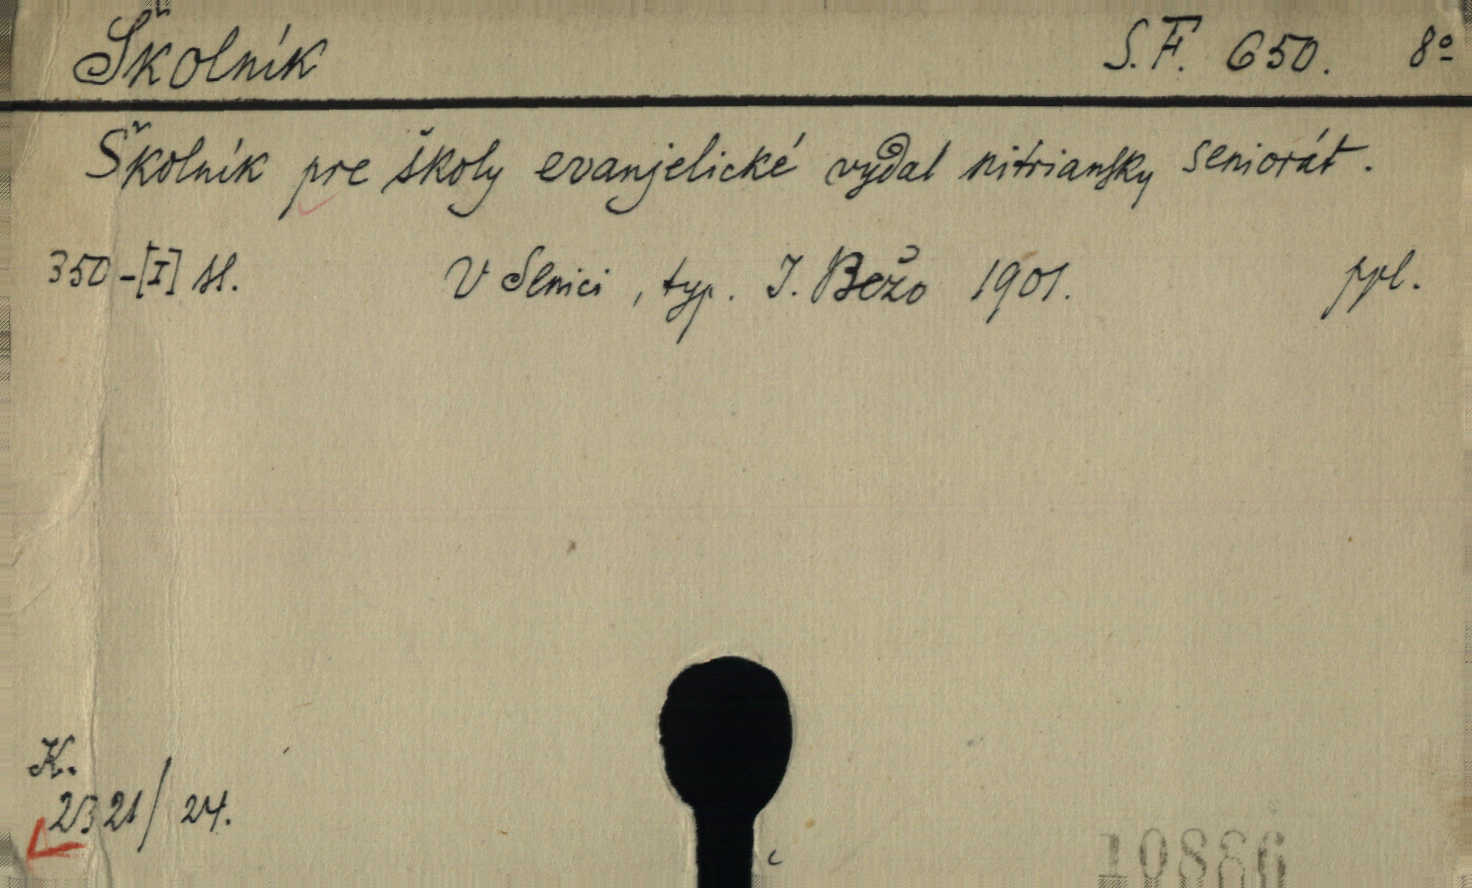 Školník S.F. 650. 8º
Školník pre školy evanjelické vydal nitriansky seniorát.
350-[I] sl. V Senici, typ. J. Bežo 1901. ppl.
K.
2321/24.
10886